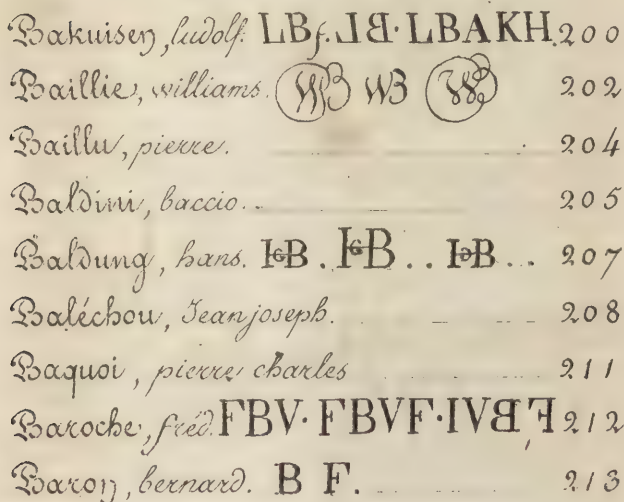 Bakuisen, ludolf. LBf. LB. LBAKH. 200
Baillie, williams. WB WB WB 202
Baillu, pierre. 204
Baldini, baccio. 205
Baldung, hans. HGB. HGB.. HGB... 207
Baléchou, Jean joseph. 208
Baquoi, pierre charles 211
Baroche, fréd. FBV. FBVF. IVBF 212
Baron, bernard. B F. 213